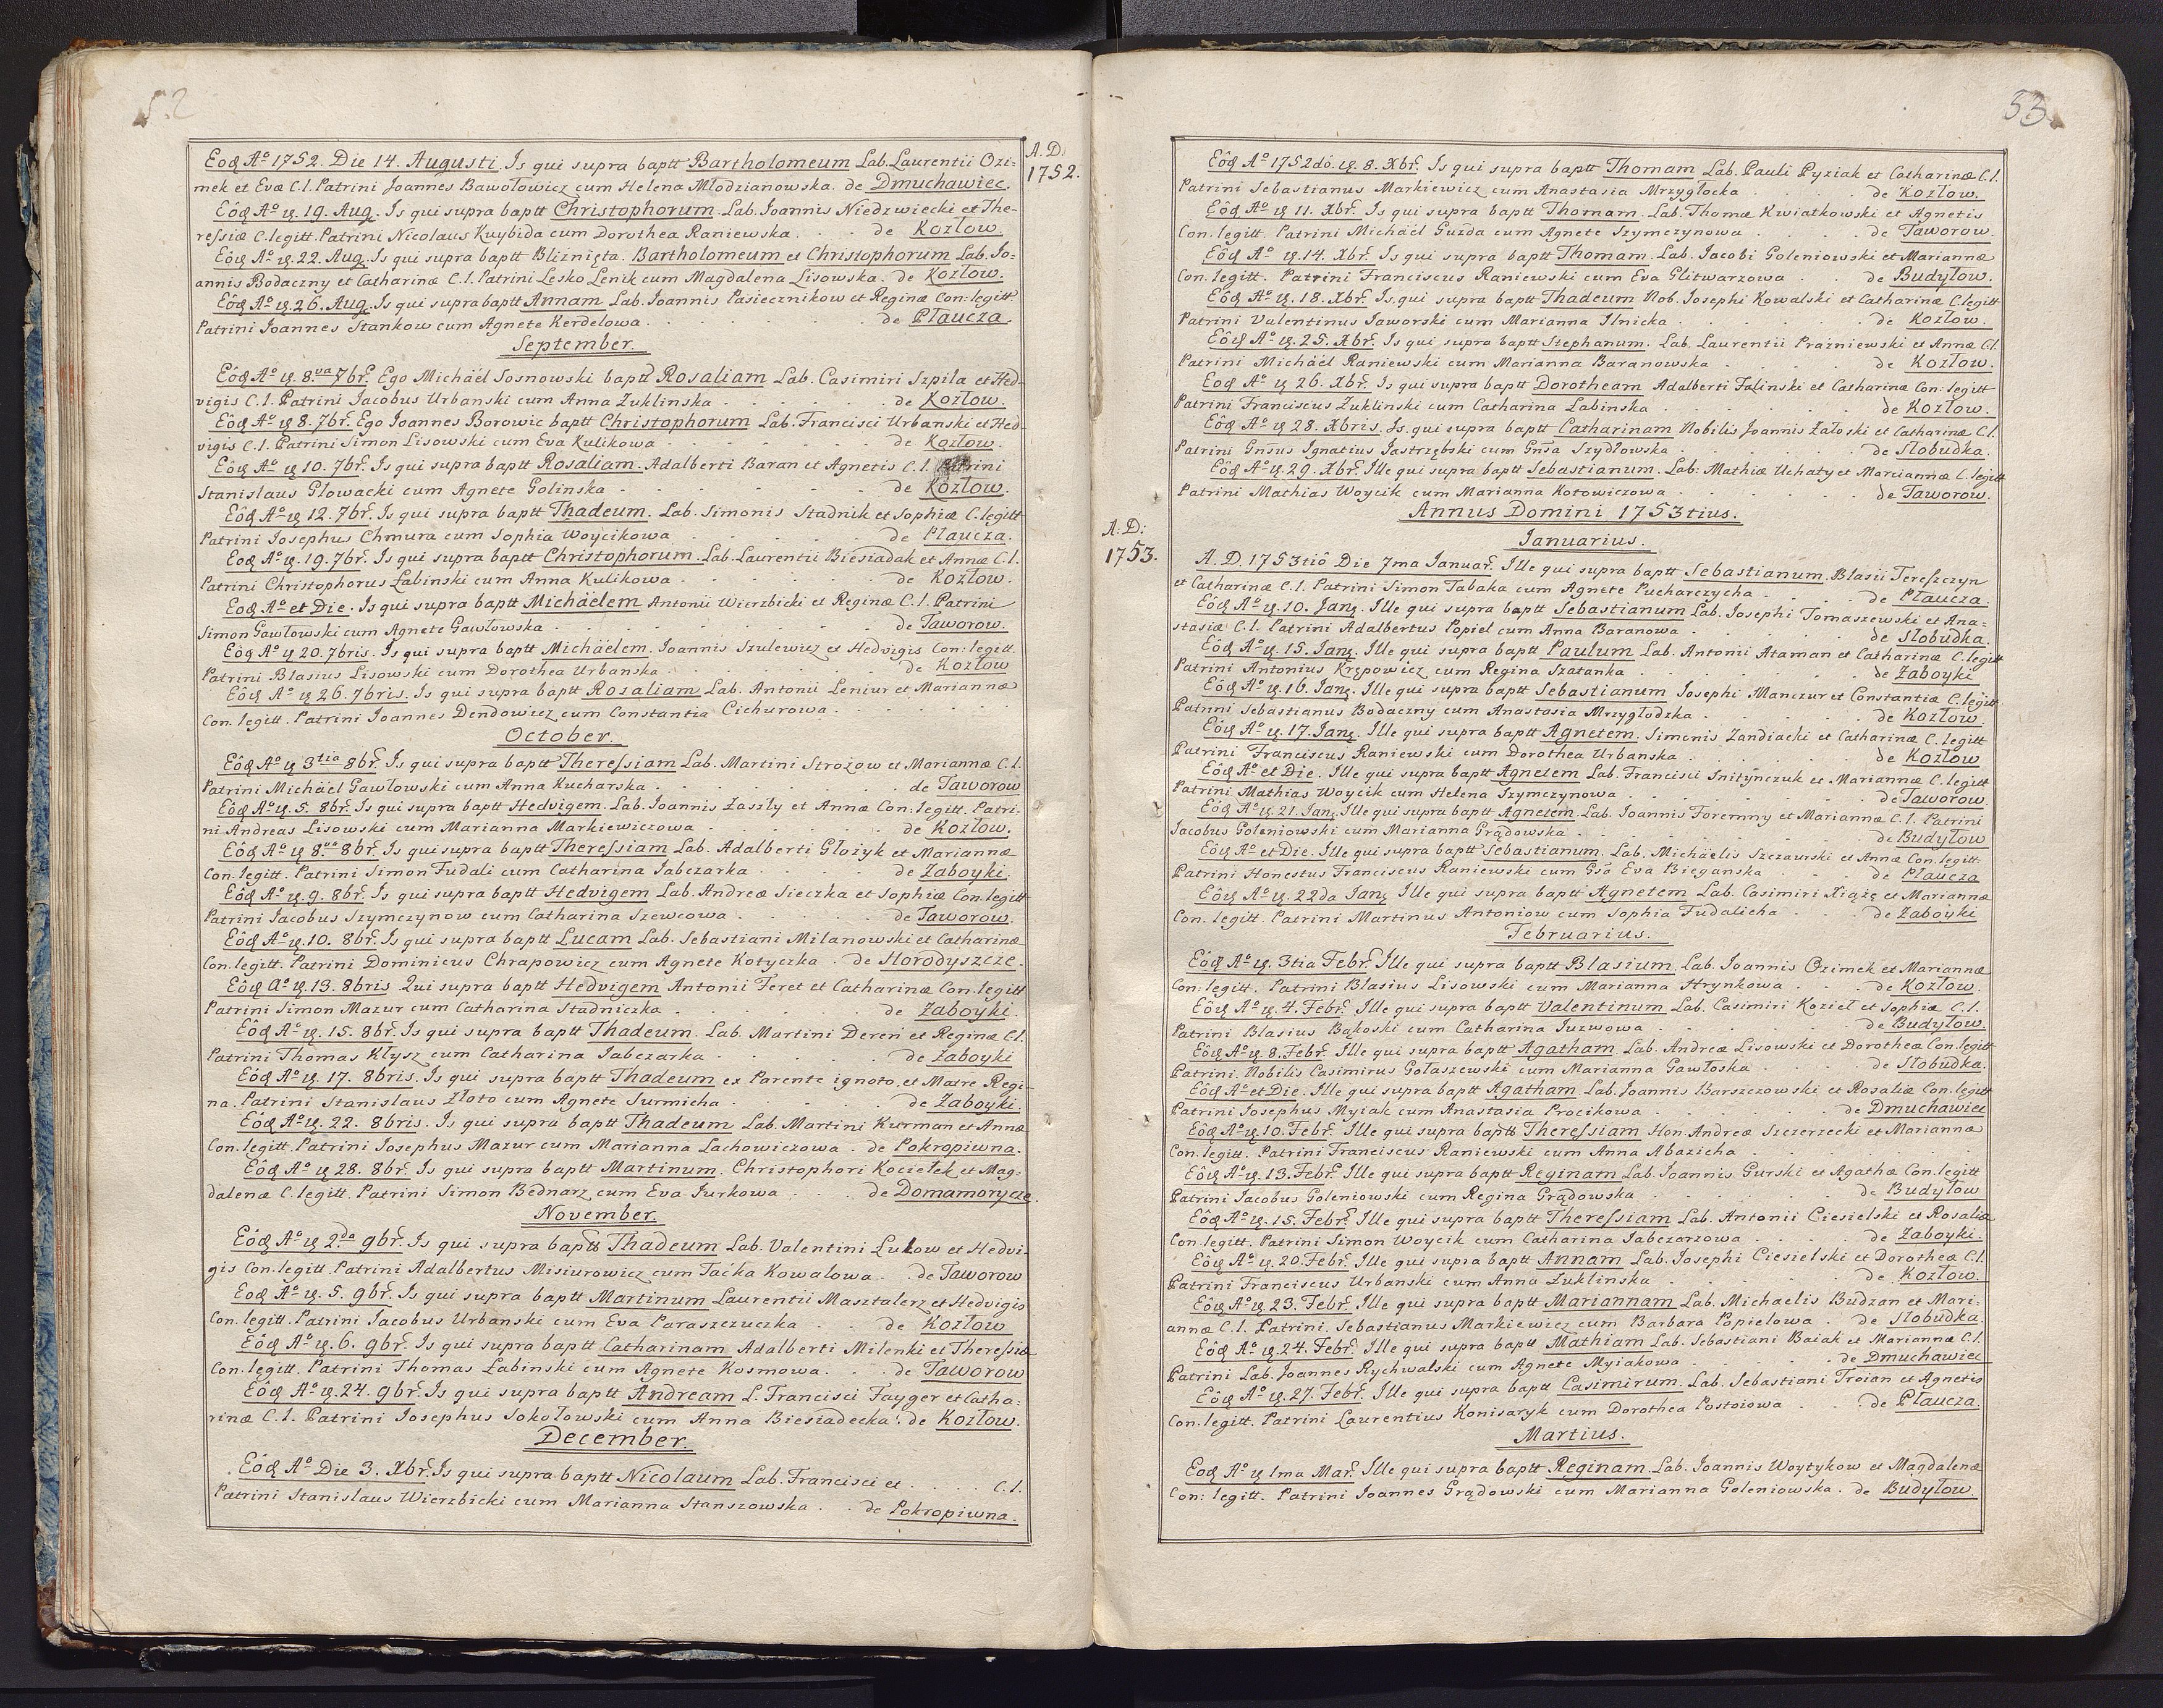 52
A. D. 1752.
Eoq Aº 1752. Die 14. Augusti. Is qui supra baptt Bartholomeum Lab. Laurentii Ozi=
mek et Evæ C.l. Patrini Joannes Bawołowicz cum Helena Młodzianowska. de Dmuchawiec.
Eôq Aº ıq. 19. Aug. Is qui supra baptt Christophorum. Lab. Ioannis Niedzwiecki et The-
ressiæ C. legitt. Patrini Nicolaus Kuybida cum Dorothea Raniewska. . . de Kozłow.
Eôq Aº ıq. 22. Aug. Is qui supra baptt Bliznięta. Bartholomeum et Christophorum Lab. Io=
annis Bodaczny et Catharinæ C.l. Patrini Lesko Lenik cum Magdalena Lisowska. de Kozłow.
Eôq Aº ıq. 26. Aug. Is qui supra baptt Annam Lab. Ioannis Pasiecznikow et Reginæ Con: legitt
Patrini Ioannes Stankow cum Agnete Kerdelowa. . . . . . de Płaucza.
September.
Eôq Aº ıq. 8.va 7br. Ego Michäel Sosnowski baptt Rosaliam Lab. Casimiri Szpila et Hed-
vigis C.l. Patrini Iacobus Urbanski cum Anna Zuklinska . . . . . de Kozłow.
Eôq Aº ıq 8. 7br. Ego Joannes Borowic baptt Christophorum Lab. Francisci Urbanski et Hed-
vigis C.l. Patrini Simon Lisowski cum Eva Kulikowa . . . . . de Kozłow.
Eôq Aº ıq 10. 7br. Is qui supra baptt Rosaliam. Adalberti Baran et Agnetis C.l. Patrini
Stanislaus Glowacki cum Agnete Golinska . . . . . de Kozłow.
Eôq Aº ıq 12. 7br. Is qui supra baptt Thadeum. Lab. Simonis Stadnik et Sophiæ C. legitt
Patrini Iosephus Chmura cum Sophia Woycikowa . . . . . de Płaucza.
Eoq Aº ıq. 19. 7br. Is qui supra baptt Christophorum. Lab. Laurentii Biesiadak et Annæ C.l.
Patrini Christophorus Łabinski cum Anna Kulikowa . . . . . de Kozłow.
Eoq Aº et Die. Is qui supra baptt Michäelem Antonii Wierzbicki et Reginæ C.l. Patrini
Simon Gawłowski cum Agnete Gawłowska . . . . . de Taworow.
Eôq Aº ıq 20. 7bris. Is qui supra baptt Michäelem. Ioannis Szulewicz et Hedvigis Con: legitt.
Patrini Blasius Lisowski cum Dorothea Urbanska . . . . . de Kozłow
Eôq Aº ıq 26. 7bris. Is qui supra baptt Rosaliam Lab. Antonii Leniur et Mariannæ
Con. legitt. Patrini Ioannes Dendowicz cum Constantia Cichurowa . . . . .
October.
Eôq Aº ıq 3tia 8br. Is qui supra baptt Theressiam Lab. Martini Strożow et Mariannæ C.l.
Patrini Michäel Gawłowski cum Anna Kucharska . . . . . de Taworow
Eôq Aº ıq. 5. 8br. Is qui supra baptt Hedvigem. Lab. Ioannis Zaszły et Annæ Con: legitt. Patri-
ni Andreas Lisowski cum Marianna Markiewiczowa . . . . . de Kozłow.
Eôq Aº ıq 8.va 8br. Is qui supra baptt Theressiam Lab. Adalberti Głożyk et Mariannæ
Con. legitt. Patrini Simon Fudali cum Catharina Iabczarka . . . . de Zaboyki.
Eôq Aº ıq. 9. 8br. Is qui supra baptt Hedvigem Lab. Andreæ Sieczka et Sophiæ Con. legitt
Patrini Iacobus Szymczynow cum Catharina Szewcowa . . . . . de Taworow.
Eôq Aº ıq. 10. 8br. Is qui supra baptt Lucam Lab. Sebastiani Milanowski et Catharinæ
Con. legitt. Patrini Dominicus Chrapowicz cum Agnete Kotyczka . de Horodyszcze.
Eôq Aº ıq. 13. 8bris Qui supra baptt Hedvigem Antonii Feret et Catharinæ Con. legitt
Patrini Simon Mazur cum Catharina Stadniczka . . . . . de Zaboyki.
Eôq Aº ıq. 15. 8br. Is qui supra baptt Thadeum. Lab. Martini Dereń et Reginæ C.l.
Patrini Thomas Kłysz cum Catharina Iabczarka . . . . . de Zaboyki
Eôq Aº ıq. 17. 8bris. Is qui supra baptt Thadeum ex Parente ignoto, et Matre Regi-
na. Patrini Stanislaus Złoto cum Agnete Surmicha . . . . . de Zaboyki.
Eôq Aº ıq. 22. 8bris. Is qui supra baptt Thadeum Lab. Martini Kurman et Annæ
Con. legitt. Patrini Iosephus Mazur cum Marianna Lachowiczowa . de Pokropiwna.
Eôq Aº ıq 28. 8br. Is qui supra baptt Martinum. Christophori Kociełek et Mag-
dalenæ C. legitt. Patrini Simon Bednarz cum Eva Iurkowa . . . de Domamorycze.
November.
Eôq Aº ıq 2.da 9br. Is qui supra baptt Thadeum Lab. Valentini Lukow et Hedvi-
gis Con. legitt. Patrini Adalbertus Misiurowicz cum Taćka Kowalowa. . de Taworow
Eoq Aº ıq. 5. 9br. Is qui supra baptt Martinum Laurentii Masztalerz et Hedvigis
Con. legitt. Patrini Iacobus Urbanski cum Eva Paraszczuczka . . de Kozłow
Eôq Aº ıq. 6. 9br. Is qui supra baptt Catharinam Adalberti Milenki et Theressiæ
Con. legitt. Patrini Thomas Łabinski cum Agnete Kosmowa. . . de Taworow
Eôq Aº ıq. 24. 9br. Is qui supra baptt Andream L. Francisci Fayger et Catha=
rinæ C.l. Patrini Iosephus Sokołowski cum Anna Biesiadecka. de Kozłow.
December.
Eôq Aº Die 3. Xbr. Is qui supra baptt Nicolaum Lab. Francisci et . . . . C.l.
Patrini Stanislaus Wierzbicki cum Marianna Stanszowska . . de Pokropiwna.
53.
Eôq Aº 1752dô. ıq. 8. Xbr. Is qui supra baptt Thomam Lab. Pauli Pyziak et Catharinæ C.l.
Patrini Sebastianus Markiewicz cum Anastasia Mrzygłocka . . . . de Kozłow.
Eôq Aº ıq 11. Xbr. Is qui supra baptt Thomam. Lab. Thomæ Kwiatkowski et Agnetis
Con. legitt. Patrini Michäel Guzda cum Agnete Szymczynowa . . . . de Taworow.
Eôq Aº ıq. 14. Xbr. Is qui supra baptt Thomam. Lab. Iacobi Goleniowski et Mariannæ
Con. legitt. Patrini Franciscus Raniewski cum Eva Glitwarzowa . . de Budyłow.
Eôq Aº ıq. 18. Xbr. Is qui supra baptt Thadeum Nob. Iosephi Kowalski et Catharinæ C. legitt
Patrini Valentinus Iaworski cum Marianna Ilnicka . . . . . de Kozłow.
Eôq Aº ıq. 25. Xbr. Is qui supra baptt Stephanum. Lab. Laurentii Prazniewski et Annæ C.l.
Patrini Michäel Raniewski cum Marianna Baranowska . . . . . de Kozłow.
Eoq Aº ıq 26. Xbr. Is qui supra baptt Dorotheam Adalberti Falinski et Catharinæ Con: legitt
Patrini Franciscus Zuklinski cum Catharina Labinska . . . . . de Kozłow.
Eôq Aº ıq 28. Xbris. Is qui supra baptt Catharinam Nobilis Joannis Załoski et Catharinæ C.l.
Patrini Gnsus Ignatius Iastrzębski cum Gnsa Szydłowska . . . . . de Słobudka.
Eôq Aº ıq. 29. Xbr. Ille qui supra baptt Sebastianum. Lab. Mathiæ Uchaty et Mariannæ C. legitt
Patrini Mathias Woycik cum Marianna Kotowiczowa . . . . . de Taworow.
Annus Domini 1753tius.
A. D: 1753.
Ianuarius.
A. D. 1753tiô Die 7ma Ianuar. Ille qui supra baptt Sebastianum. Blasii Tereszczyn
et Catharinæ C.l. Patrini Simon Tabaka cum Agnete Pucharczycha . . . . de Płaucza.
Eôq Aº ıq. 10. Janr. Ille qui supra baptt Sebastianum Lab. Iosephi Tomaszewski et Ana=
stasiæ C.l. Patrini Adalbertus Popiel cum Anna Baranowa . . . . . de Słobudka.
Eôq Aº ıq. 15. Ianr. Ille qui supra baptt Paulum Lab. Antonii Ataman et Catharinæ C. legitt
Patrini Antonius Krępowicz cum Regina Szatanka . . . . . de Zaboyki
Eôq Aº ıq. 16. Ianr. Ille qui supra baptt Sebastianum Iosephi Manczur et Constantiæ C. legitt
Patrini Sebastianus Bodaczny cum Anastasia Mrzygłodzka . . . . . de Kozłow.
Eôq Aº ıq. 17. Ianr. Ille qui supra baptt Agnetem. Simonis Zandiacki et Catharinæ C. legitt
Patrini Franciscus Raniewski cum Dorothea Urbanska . . . . . de Kozłow
Eôq Aº et Die. Ille qui supra baptt Agnetem Lab. Francisci Snitynczuk et Mariannæ C. legitt
Patrini Mathias Woycik cum Helena Szymczynowa . . . . . de Taworow.
Eôq Aº ıq. 21. Ianr. Ille qui supra baptt Agnetem. Lab. Ioannis Foremny et Mariannæ C.l. Patrini
Iacobus Goleniowski cum Marianna Grądowska . . . . . de Budyłow
Eôq Aº et Die. Ille qui supra baptt Sebastianum. Lab. Michäelis Szczawrski et Annæ Con. legitt.
Patrini Honestus Franciscus Raniewski cum Gsa Eva Bieganska . . . . de Płaucza
Eôq Aº ıq. 22da Ianr. Ille qui supra baptt Agnetem Lab. Casimiri Xiążę et Mariannæ
Con. legitt. Patrini Martinus Antoniow cum Sophia Fudalicha . . . de Zaboyki
Februarius.
Eôq Aº ıq. 3tia Febr. Ille qui supra baptt Blasium. Lab. Ioannis Ozimek et Mariannæ
Con: legitt. Patrini Blasius Lisowski cum Marianna Hrynkowa . . . de Kozłow.
Eôq Aº ıq. 4. Febr. Ille qui supra baptt Valentinum Lab. Casimiri Kozieł et Sophiæ C.l.
Patrini Blasius Bąkoski cum Catharina Iuzwowa . . . . . de Budyłow.
Eôq Aº ıq. 8. Febr. Ille qui supra baptt Agatham. Lab. Andreæ Lisowski et Dorotheæ Con. legitt
Patrini. Nobilis Casimirus Gołaszewski cum Marianna Gawłoska . . . . de Słobudka.
Eôq Aº et Die. Ille qui supra baptt Agatham. Lab. Ioannis Barszczowski et Rosaliæ Con. legitt
Patrini Iosephus Myiak cum Anastasia Procikowa . . . . . de Dmuchawiec
Eôq Aº ıq. 10. Febr. Ille qui supra baptt Theressiam Hon. Andreæ Szczerzecki et Mariannæ
Con. legitt. Patrini Franciscus Raniewski cum Anna Abazicha . . . . .
Eôq Aº ıq. 13. Febr. Ille qui supra baptt Reginam Lab. Ioannis Gurski et Agathæ Con. legitt
Patrini Iacobus Goleniowski cum Regina Grądowska . . . . . de Budyłow
Eôq Aº ıq. 15. Febr. Ille qui supra baptt Theressiam Lab. Antonii Ciesielski et Rosaliæ
Con. legitt. Patrini Simon Woycik cum Catharina Iabczarzowa . . . . de Zaboyki.
Eôq Aº ıq. 20. Febr. Ille qui supra baptt Annam Lab. Iosephi Ciesielski et Dorotheæ C.l.
Patrini Franciscus Urbanski cum Anna Zuklinska . . . . . de Kozłow.
Eôq Aº ıq. 23. Febr. Ille qui supra baptt Mariannam Lab. Michaelis Budzan et Mari=
annæ C.l. Patrini. Sebastianus Markiewicz cum Barbara Popielowa . de Słobudka.
Eôq Aº ıq. 24. Febr. Ille qui supra baptt Mathiam Lab. Sebastiani Baiak et Mariannæ C.l.
Patrini Lab. Joannes Rychwalski cum Agnete Myiakowa . . . . . de Dmuchawiec
Eôq Aº ıq. 27. Febr. Ille qui supra baptt Casimirum. Lab. Sebastiani Troian et Agnetis
Con. legitt. Patrini Laurentius Konisaryk cum Dorothea Postoiowa . . de Płaucza.
Martius.
Eoq Aº ıq 1ma Mar. Ille qui supra baptt Reginam. Lab. Ioannis Woytykow et Magdalenæ
Con: legitt. Patrini Ioannes Grądowski cum Marianna Goleniowska. de Budyłow.